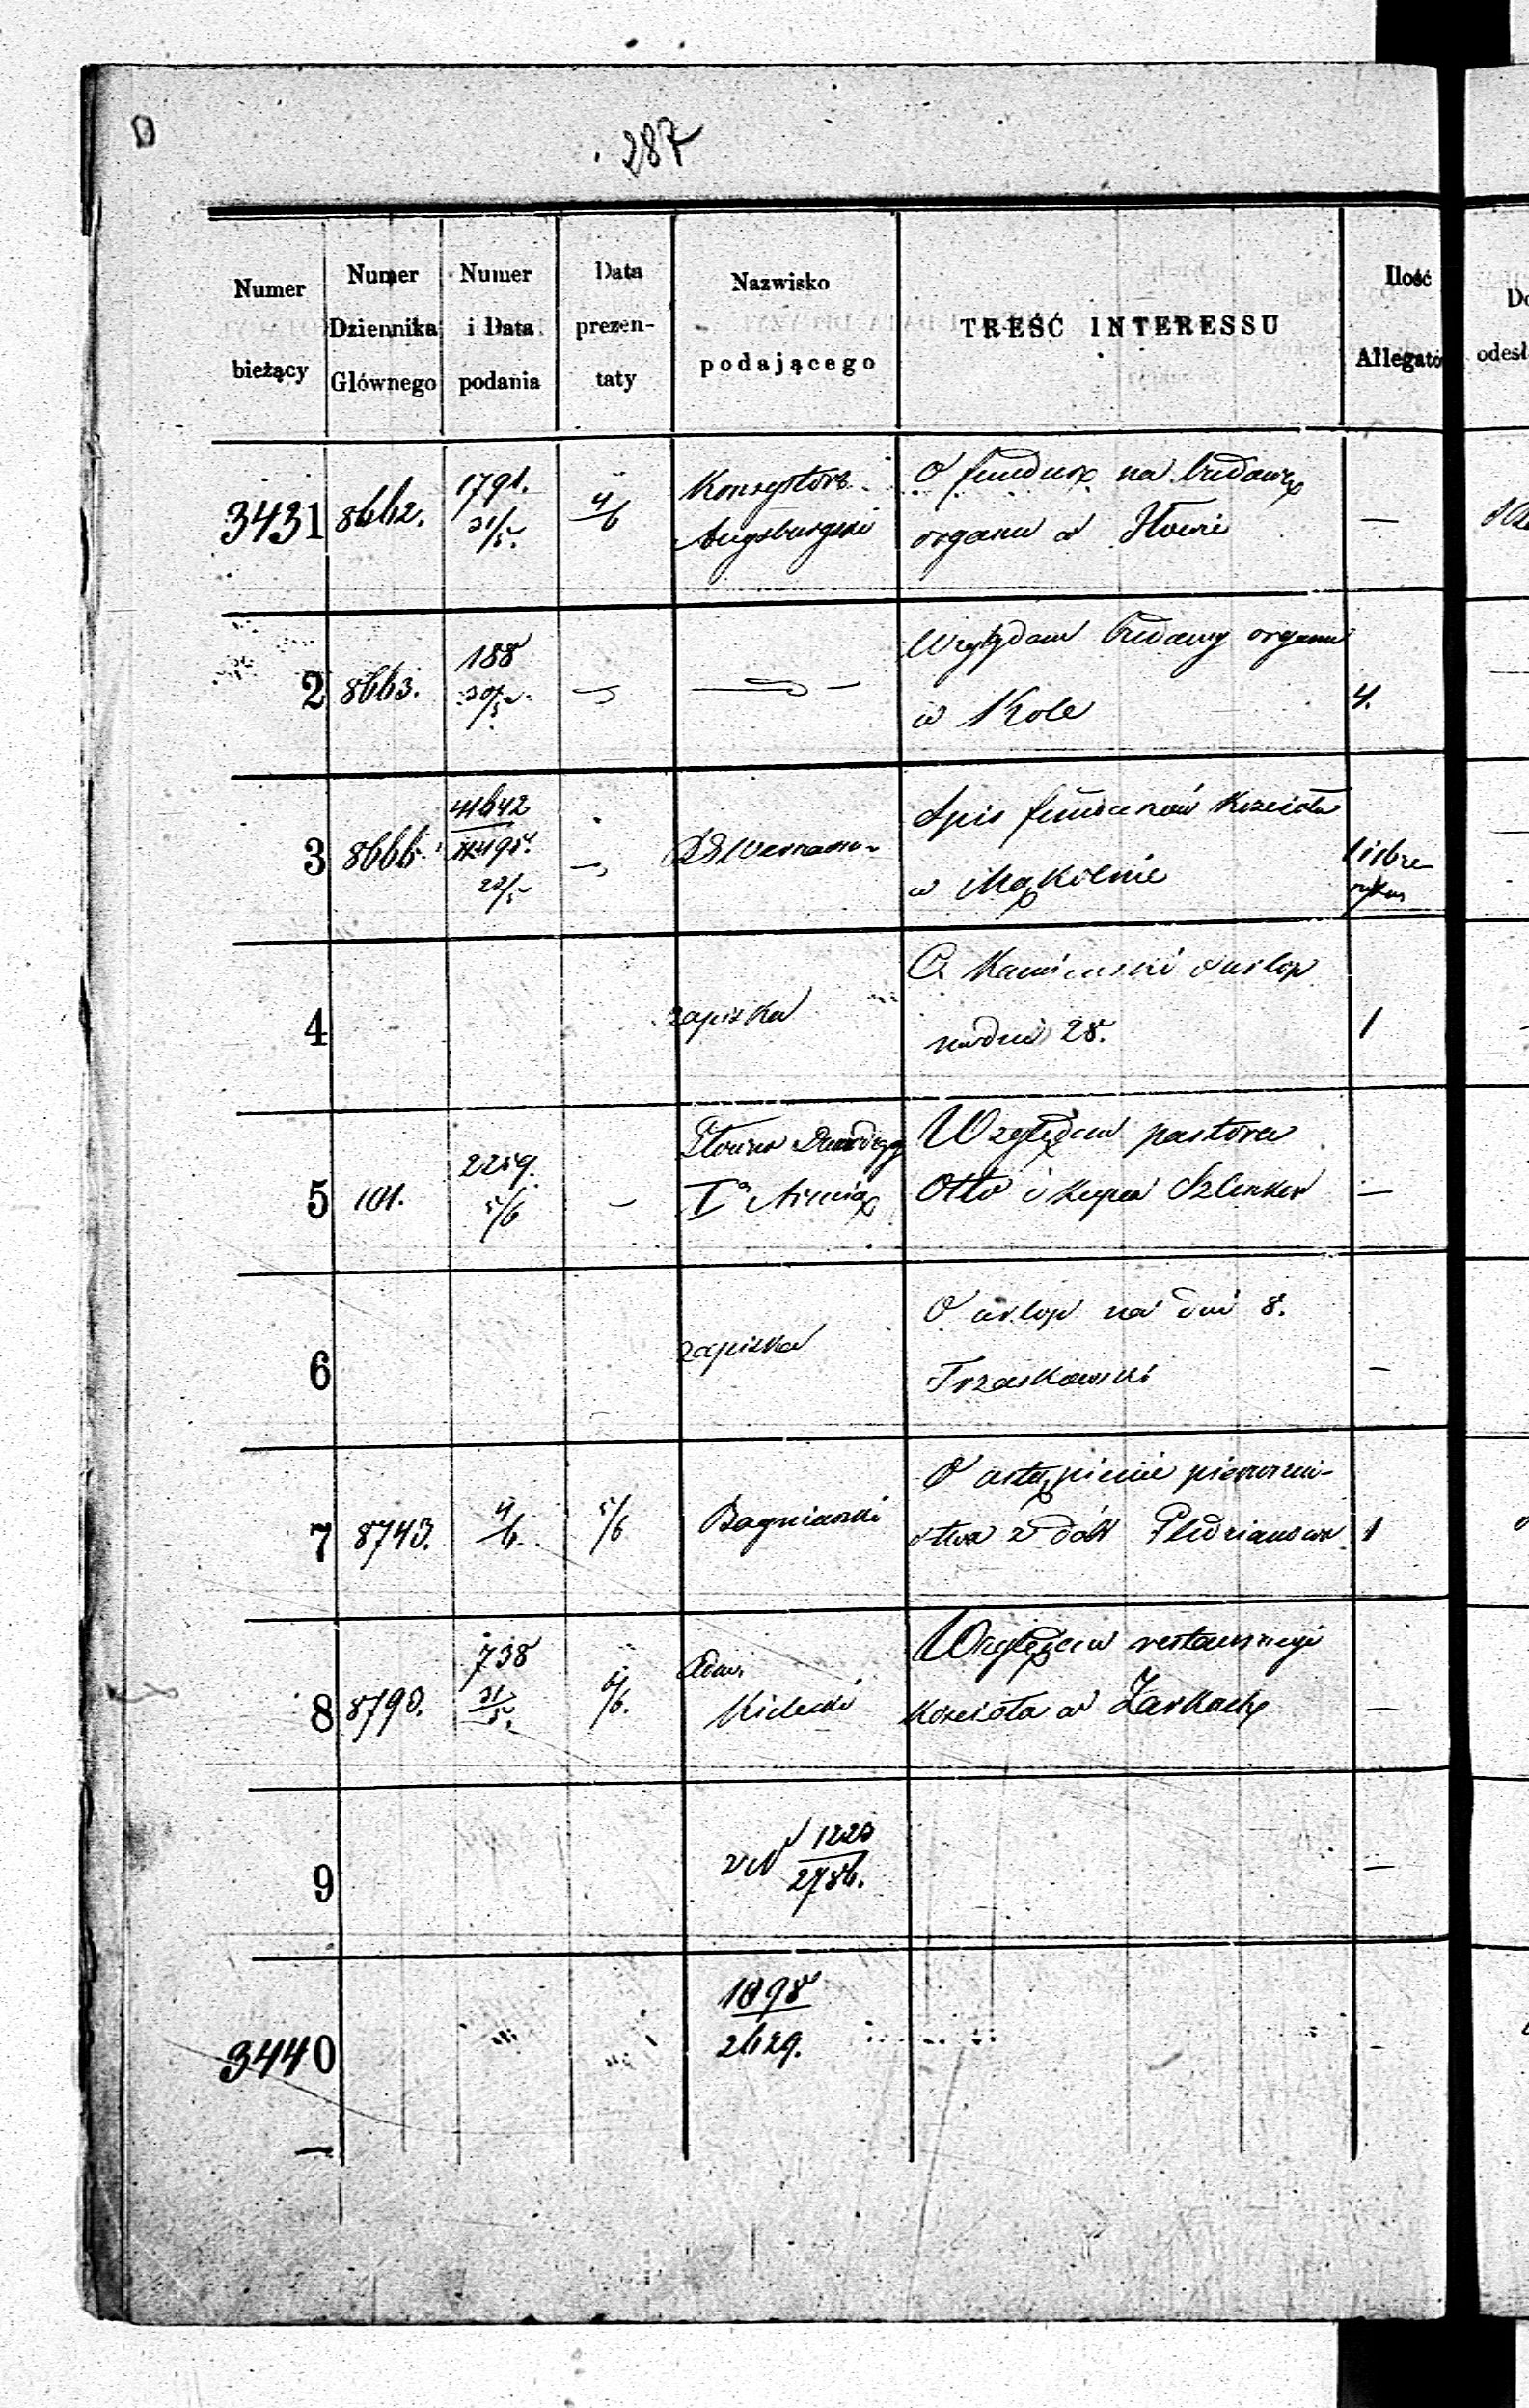 287
Numer bieżący
Numer Dziennika Głównego
Numer i Data podania
Data prezen-taty
Nazwisko podającego
TREŚĆ INTERESSU
Ilość Allegatów
3431 8662. 1791. 31/5. 4/6 Konsystorz Augsburgski O fundusz na budowę organu w Iłowie —
2 8663. 188 30/5. Względem budowy organu w Kole 4.
3 8666. 41642 22/5 Spis funduszów Kościoła w Mąkolnie
4 zapiska O. Kamieński o urlop na dni 28. 1
5 101. 2259. 5/6 — Względem pastora Otto i kupca Szlenker —
6 zapiska O urlop na dni 8. Trzaskowski —
7 8743. 4/6. 5/6 Bagniewski O ustąpienie pierwszeń-stwa z dóbr 1
8 8790. 738 31/5. 6/6. Kielecki Względem restauracyi Kościoła w Żarkach —
9 1220 2786. —
3440 1898 2629. -